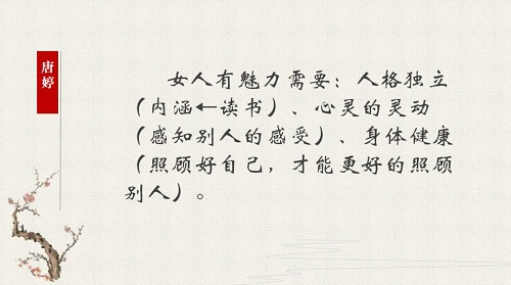 唐婷
女人有魅力需要：人格独立
（内涵←读书）、心灵的灵动
（感知别人的感受）、身体健康
（照顾好自己，才能更好的照顾
别人）。